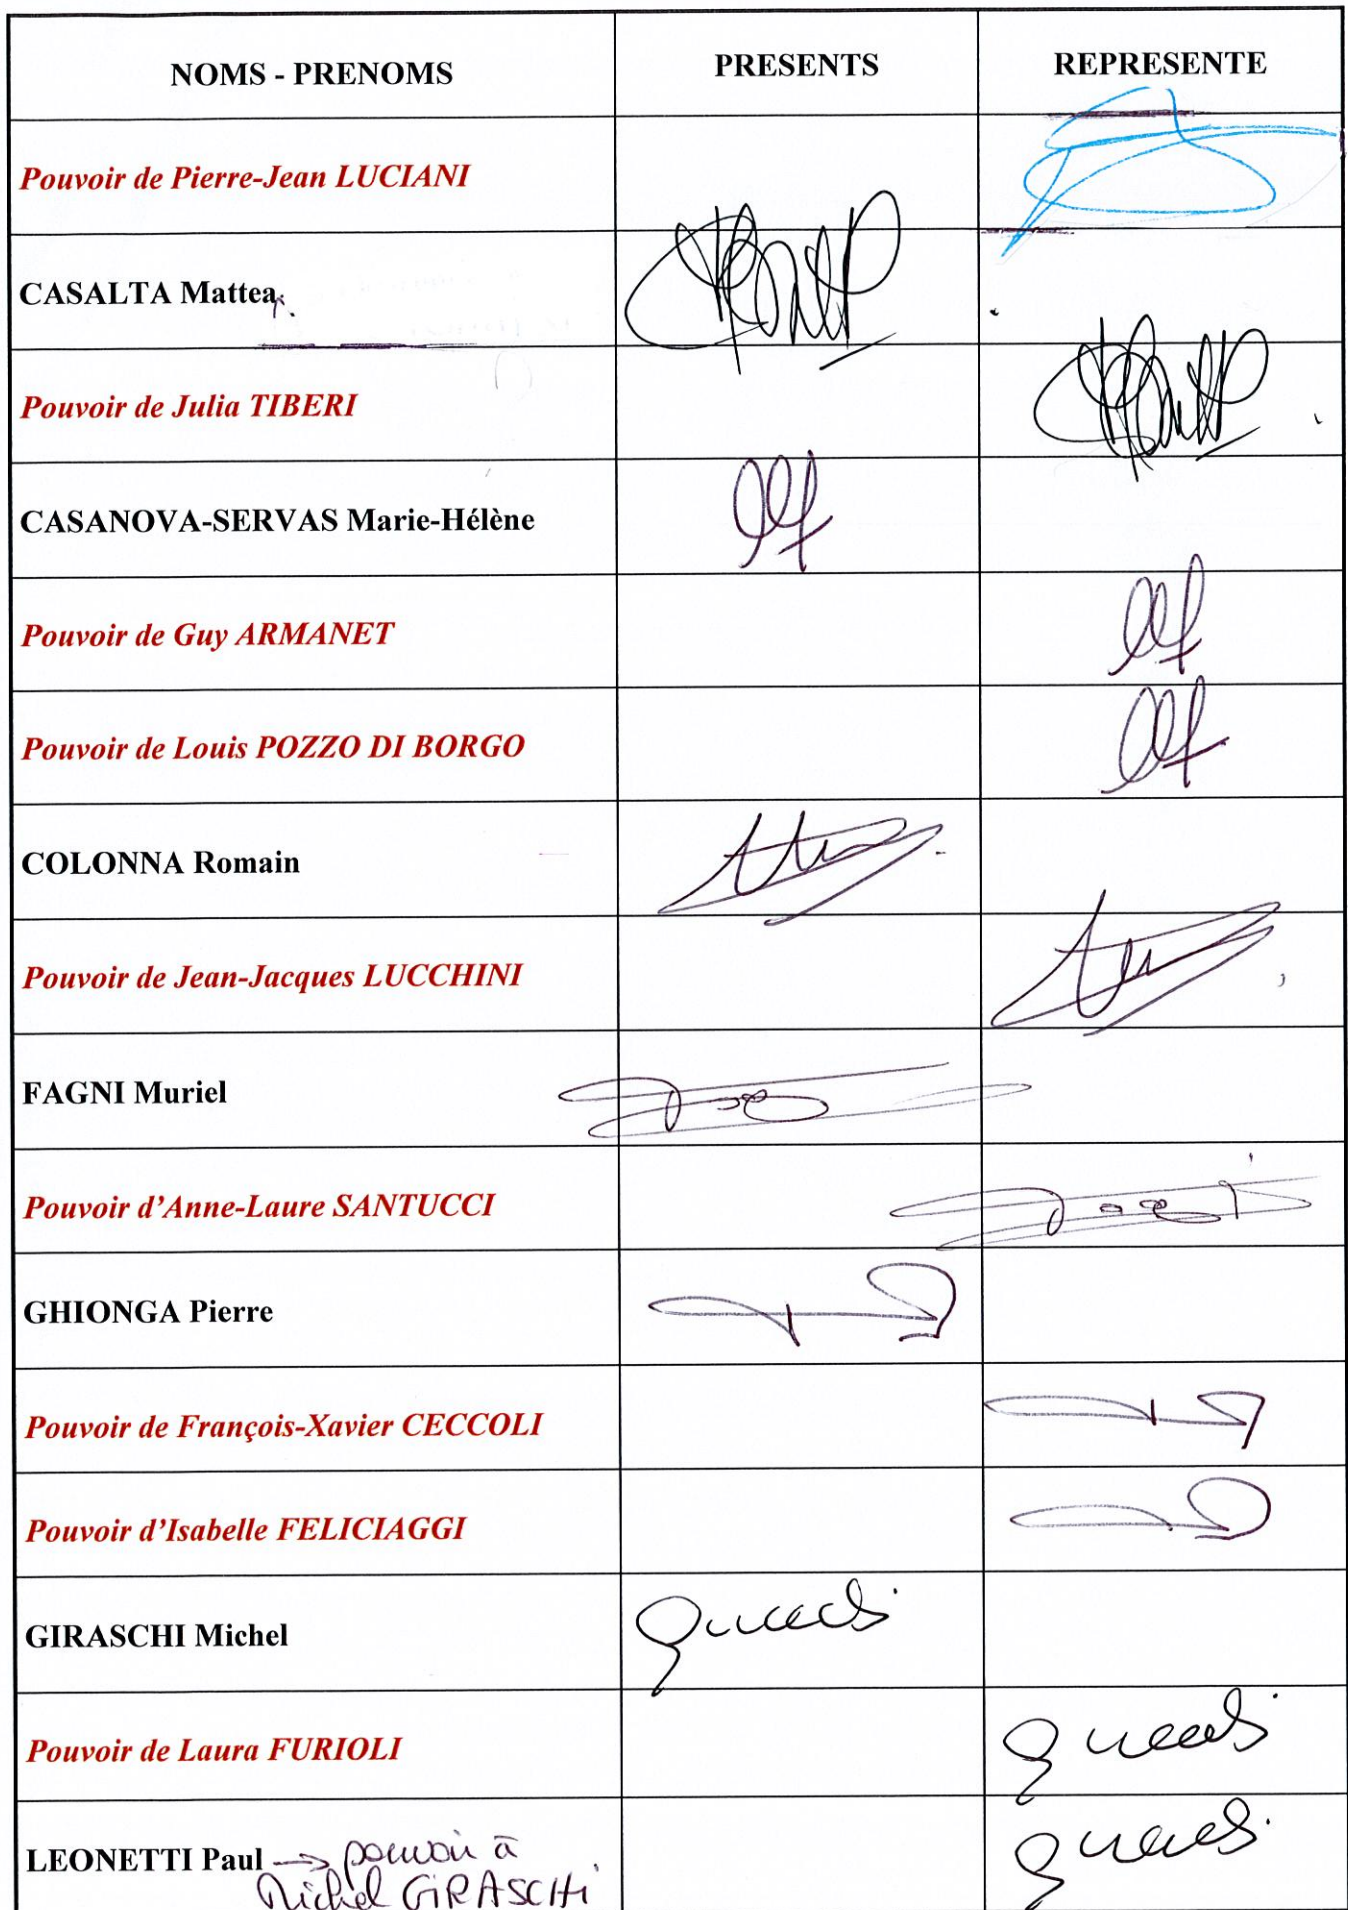 NOMS - PRENOMS PRESENTS REPRESENTE
Pouvoir de Pierre-Jean LUCIANI
CASALTA Mattea
Pouvoir de Julia TIBERI
CASANOVA-SERVAS Marie-Hélène
Pouvoir de Guy ARMANET
Pouvoir de Louis POZZO DI BORGO
COLONNA Romain
Pouvoir de Jean-Jacques LUCCHINI
FAGNI Muriel
Pouvoir d'Anne-Laure SANTUCCI
GHIONGA Pierre
Pouvoir de François-Xavier CECCOLI
Pouvoir d'Isabelle FELICIAGGI
GIRASCHI Michel
Pouvoir de Laura FURIOLI
LEONETTI Paul → pouvoir à
Michel GIRASCHI